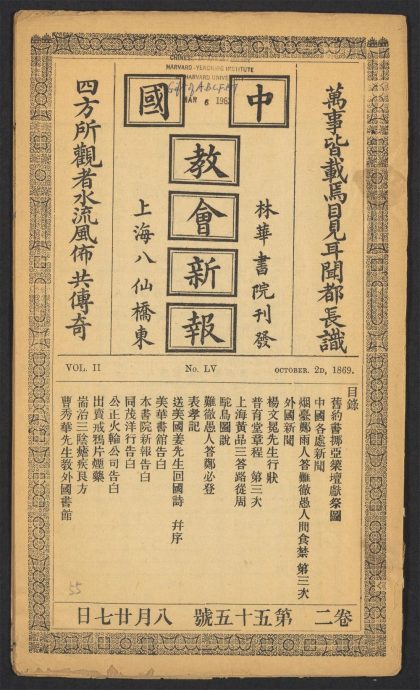 CHINESE
HARVARD-YENCHING INSTITUTE
HARVARD UNIV
MAR 6 196
萬事皆載焉目見耳聞都長識
中國
教會新報
林華書院刊發
上海八仙橋東
四方所觀者水流風佈共傳奇
VOL. II
No. LV
OCTOBER. 2D, 1869.
目錄
舊約書挪亞築壇獻祭圖
中國各處新聞
烟臺鄭雨人答難徹愚人問食禁 第三次
外國新聞
楊文晃先生行狀
普育堂章程 第三次
上海黃品三答路從周
駝鳥圖說
難徹愚人答鄭必登
表孝記
送英國姜先生回國詩 幷序
美華書館告白
本書院新報告白
同茂洋行告白
公正火輪公司告白
出賣戒鴉片煙藥
崙治三陰瘧疾良方
曹秀華先生教外國書館
卷二 第五十五號 八月廿七日
55